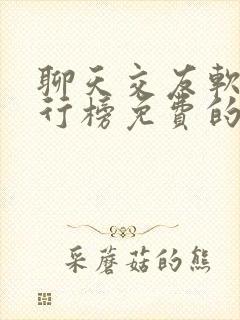 聊天交友軟
行榜免費的
采蘑菇的熊